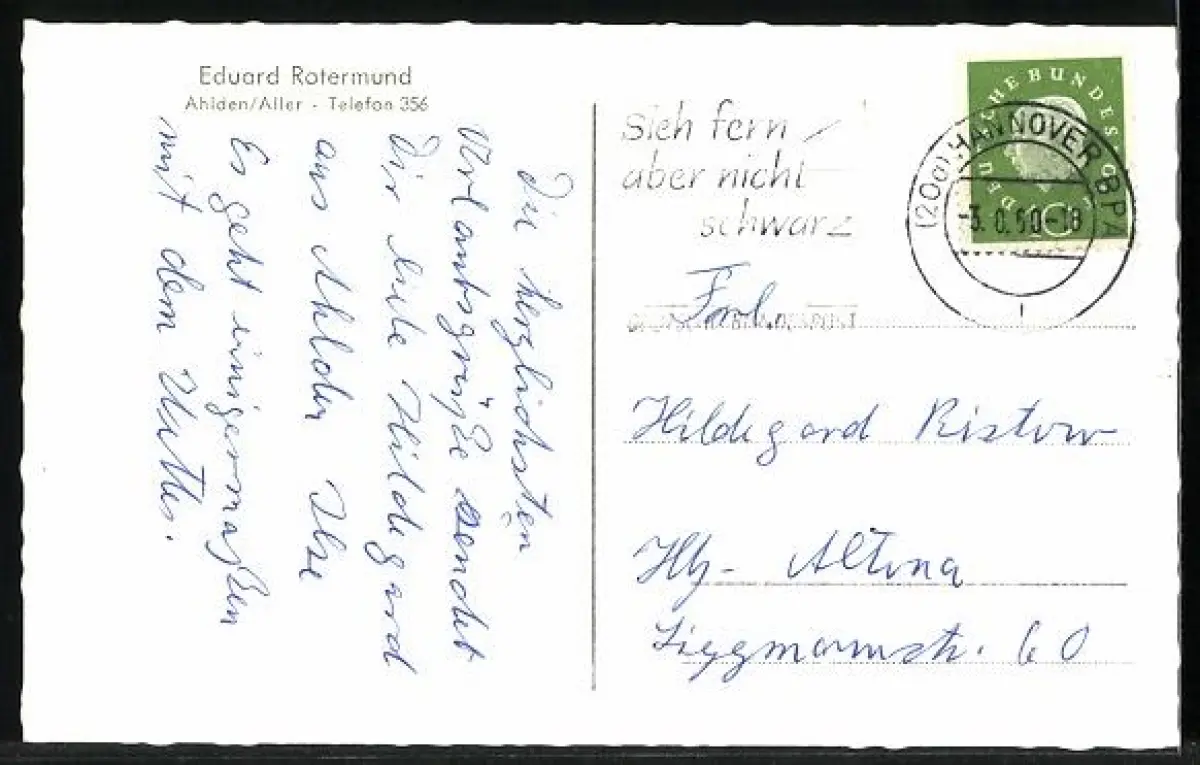 Eduard Rotermund
Ahlden/Aller - Telefon 356
Die herzlichsten
Urlaubsgrüße sendet
Dir liebe Hildegard
aus Ahlden Ilse
Es geht einigermaßen
mit dem Wetter.
Sieh fern
aber nicht
schwarz
DEUTSCHE BUNDESPOST
DEUTSCHE BUNDESPOST
10
(20a) HANNOVER BPA
Frl.
Hildegard Ristow
Hbg- Altona
60